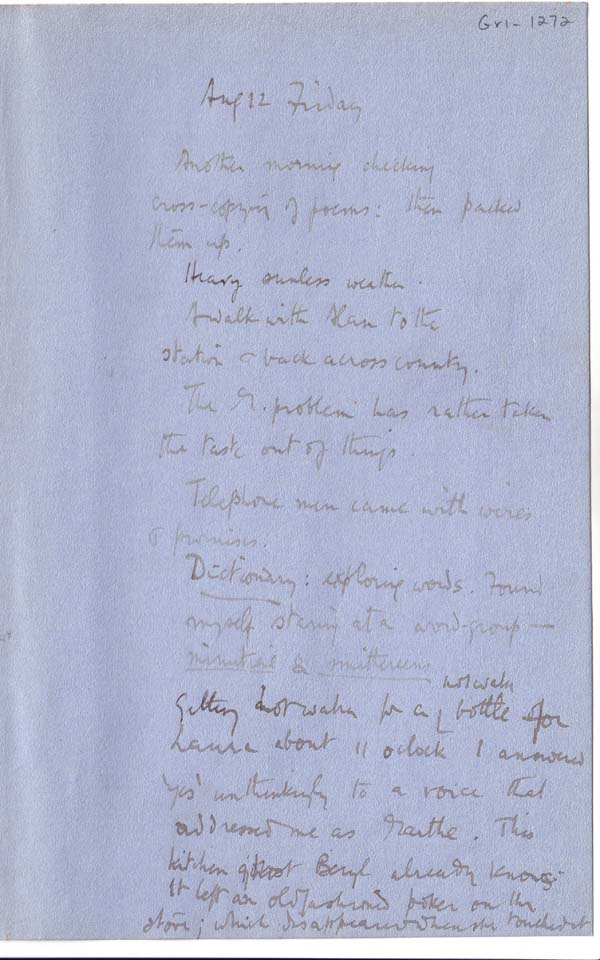 Gri-1272
Aug 12 Friday
Another morning checking
cross-copying of poems: then packed
them up.
Heavy sunless weather.
A walk with Alan to the
station & back across country.
The G. problem has rather taken
the taste out of things.
Telephone men came with wires
& promises.
Dictionary: exploring words. Found
myself staring at a word-group —
minutiae & smithereens
hot water
Getting hot water for a bottle for
Laura about 11 oclock I answered
'yes' unthinkingly to a voice that
addressed me as . This
kitchen ghost Beryl already knows:
it left an oldfashioned poker on the
stove; which disappeared when she touched it